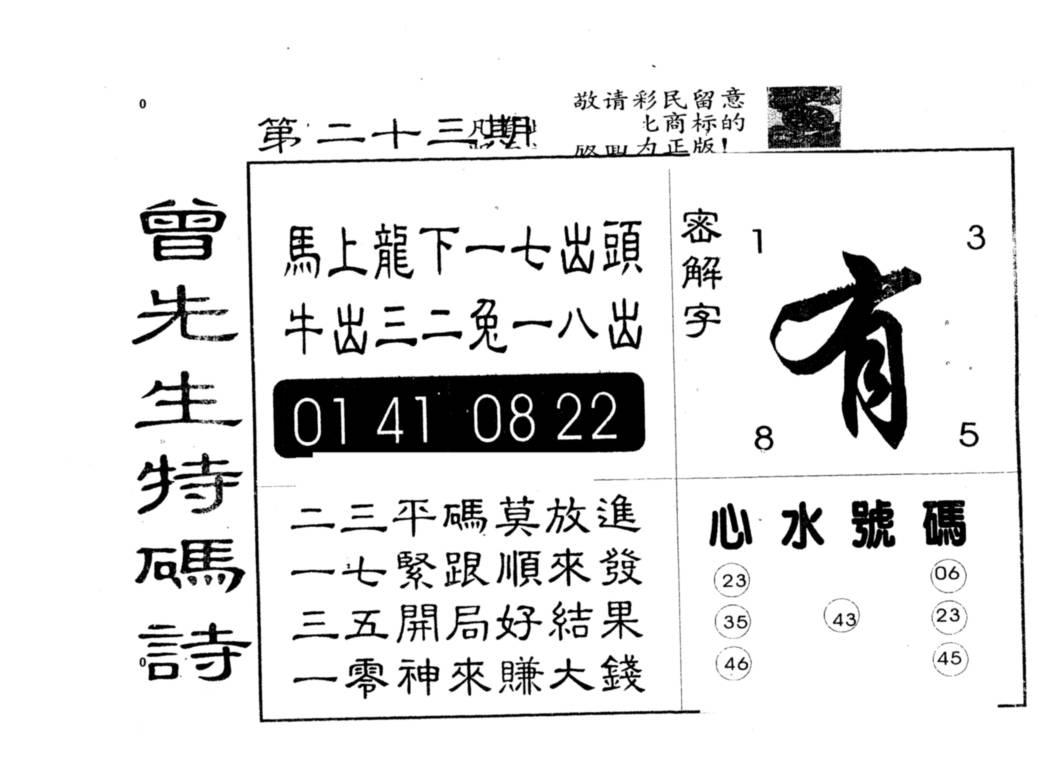 0
敬请彩民留意
商标的
为正版!
第二十三期
曾先生特碼詩
馬上龍下一七出頭
牛出三二兔一八出
01 41 08 22
二三平碼莫放進
一七緊跟順來發
三五開局好結果
一零神來賺大錢
密解字
1 3
有
8 5
心水號碼
23 06
35 43 23
46 45
0